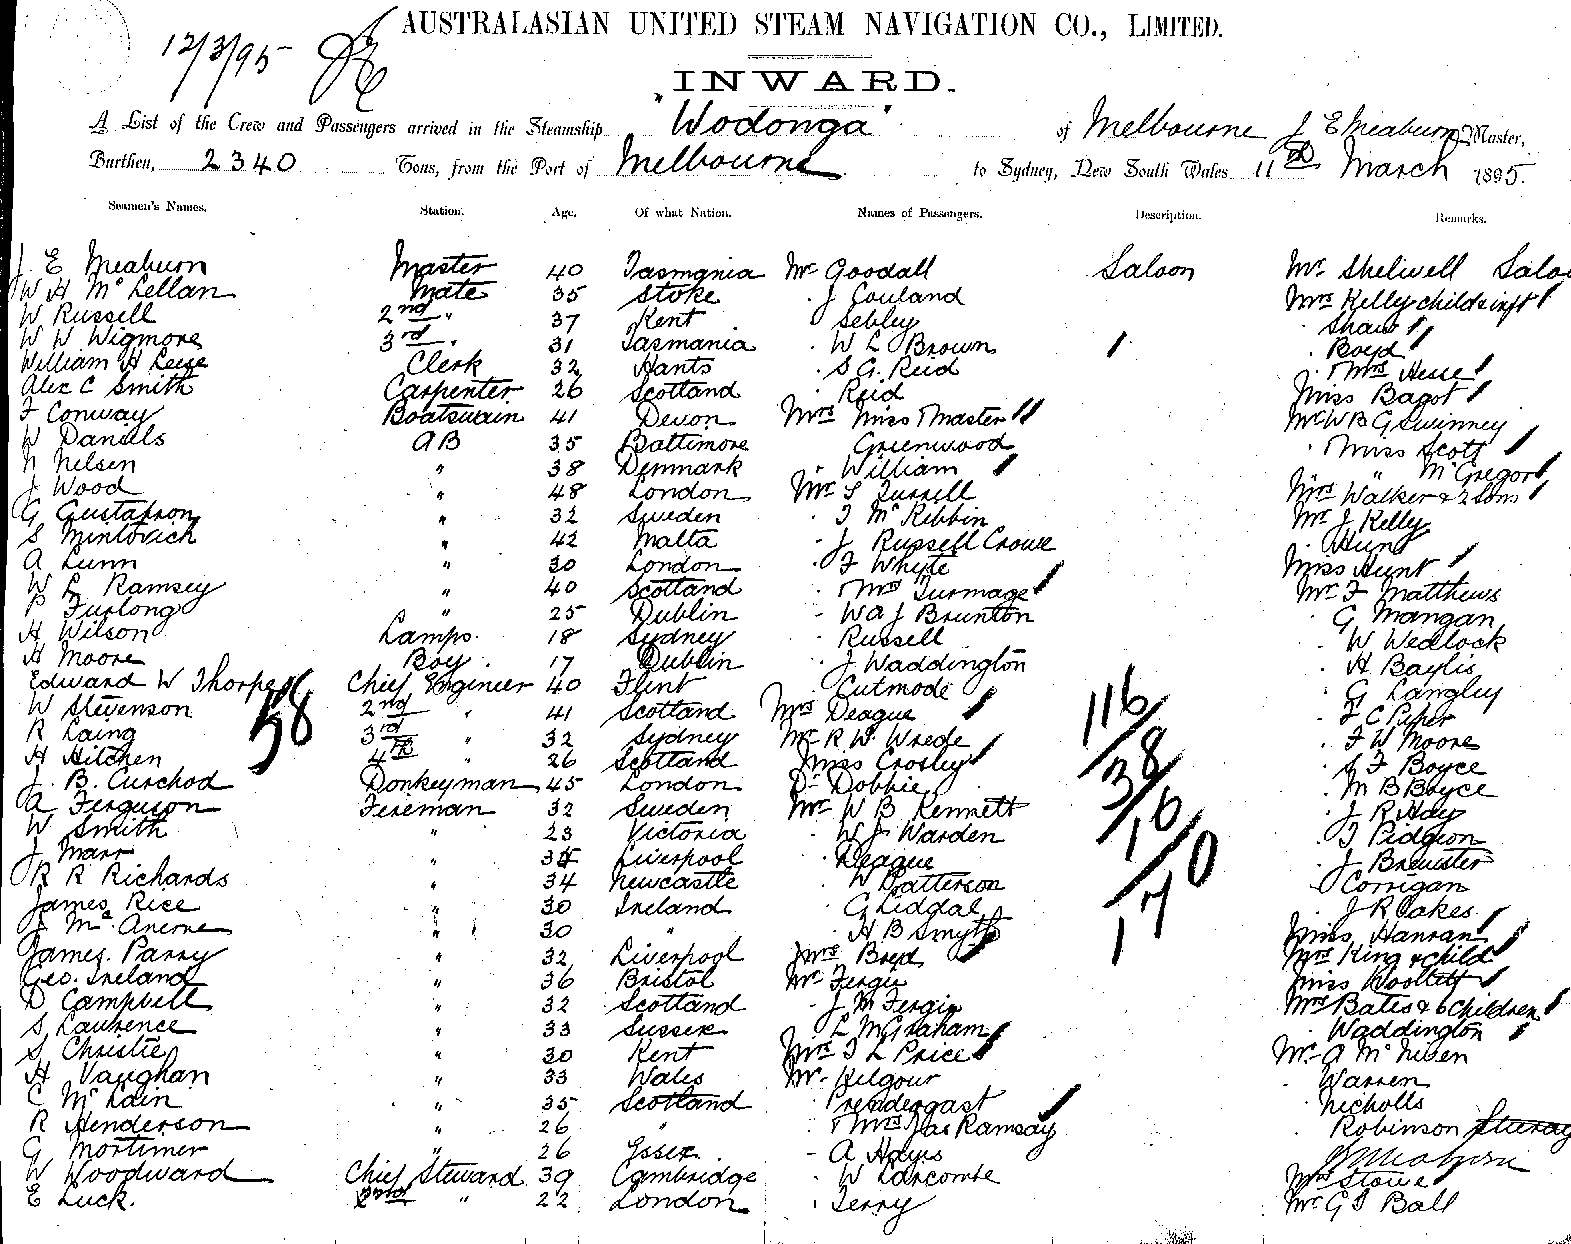 12/3/95
AUSTRALASIAN UNITED STEAM NAVIGATION CO., LIMITED.
INWARD.
A List of the Crew and Passengers arrived in the Steamship "Wodonga" of Melbourne J E Meaburn Master,
Burthen, 2340 Tons, from the Port of Melbourne to Sydney, New South Wales 11th March 1895.
Seamen's Names. Station. Age. Of what Nation. Names of Passengers. Description. Remarks.
J. E Meaburn Master 40 Tasmania Mr Goodall Saloon Mr Shelwell
W H McLellan Mate 35 Stoke J Couland Mrs Kelly child & inft
W Russell 2nd " 37 Kent Sebley Shaw
W W Wigmore 3rd " 31 Tasmania W L Brown Boyd
William H Leese Clerk 32 Hants S G. Reid Mrs Hesse
Alex C Smith Carpenter 26 Scotland Reid Miss Bagot
F Conway Boatswain 41 Devon Mrs Miss & Master Mr W B G Swinney
W Daniels AB 35 Baltimore Greenwood Miss Scott
N Nelsen " 38 Denmark William " McGregor
J Wood " 48 London Mr S Turrell Mrs Walker & 2 sons
G Gustafson " 32 Sweden T McKibbin Mr J. Kelly
S Mintovich " 42 Malta J Russell Crowe Hunt
A Lunn " 30 London F Whyte Miss Hunt
W L Ramsey " 40 Scotland Mrs Turmage Mr F Matthews
P Furlong " 25 Dublin W A J Brunton G Mangan
H Wilson Lamps. 18 Sydney Russell W Wedlock
H Moore Boy. 17 Dublin J Waddington H Baylis
Edward W Thorpe Chief Engineer 40 Flint Cutmode G Langley
W Stevenson 2nd " 41 Scotland Mrs Deague F C Piper
R Laing 58 3rd " 32 Sydney Mr R. W. Wrede 116 F W Moore
H Hitchen 4th 26 Scotland Miss Crosley 38 S F Boyce
J. B. Curchod Donkeyman 45 London Dr Dobbie M B Boyce
A Ferguson Fireman 32 Sweden Mr W B Kennett 16 J R Hay
W Smith " 23 Victoria W J Warden T Pidgeon
J Marr " 34 Liverpool Deague 0 J Brewster
R R Richards " 34 Newcastle W Patterson 17 Corrigan
James Rice " 30 Ireland G Liddal J R Oakes
J McAnerne " 30 " H B Smyth Miss Hanran
James. Parry " 32 Liverpool Mrs Boyd Mrs King & child
Geo. Ireland " 36 Bristol Mr Fergie Miss Woollett
D Campbell " 32 Scotland J M Fergie Mrs Bates & 6 children
S Lawrence " 33 Sussex L M Graham Waddington
S Christie " 30 Kent Mrs T L Price Mr A McNiven
H Vaughan " 33 Wales Mr Kilgour Warren
C McLain " 35 Scotland Prendergast Nicholls
R Henderson " 26 " Mrs Jas Ramsay Robinson
G Mortimer " 26 Essex. A Hayes
W Woodward Chief Steward 39 Cambridge W Larcombe Mrs Stowe
E Luck. 2nd " 22 London Terry Mr G T Ball